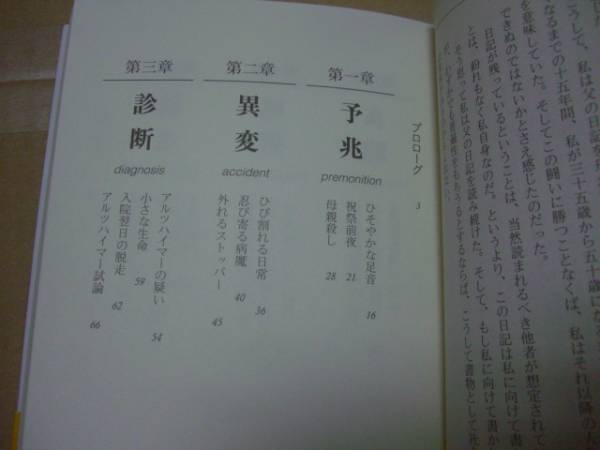 日記だ
こうして、私は父の日記を
なるまでの十五年間、私が三十五歳から五十歳にな
を意味していた。そしてこの闘いに勝つことなくば、私はそれ以降の人
できぬのではないかとさえ感じたのだった。
日記が残っているということは、当然読まれるべき他者が想定されて
とは、紛れもなく私自身なのだ。というより、この日記は私に向けて書
そう思って私は父の日記を読み続けた。そして、もし私に向けて書か
もうるとするならば、こうして書物として社
プロローグ 3
第一章
予兆
premonition
ひそやかな足音 16
祝祭前夜 21
母親殺し 28
第二章
異変
accident
ひび割れる日常 36
忍び寄る病魔 40
外れるストッパー 45
第三章
診断
diagnosis
アルツハイマーの疑い 54
小さな生命 59
入院翌日の脱走 62
アルツハイマー試論 66